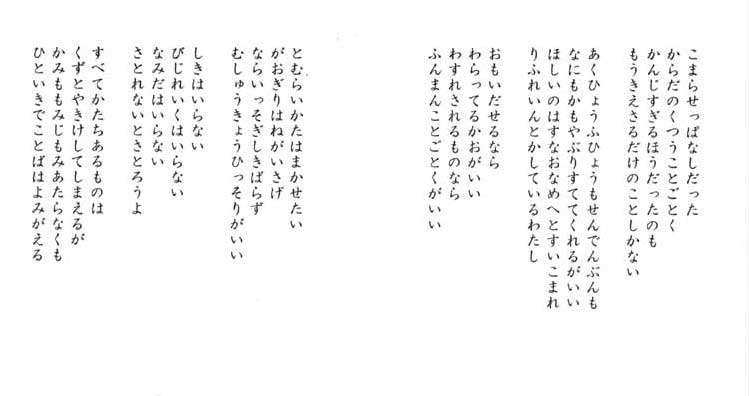 こまらせっぱなしだった
からだのくつうことごとく
かんじすぎるほうだったのも
もうきえさるだけのことしかない
あくひょうふひょうもせんでんぶんも
なにもかもやぶりすててくれるがいい
ほしいのはすなおなめへとすいこまれ
りふれいんとかしているわたし
おもいだせるなら
わらってるかおがいい
わすれされるものなら
ふんまんことごとくがいい
とむらいかたはまかせたい
がおぎりはねがいさげ
ならいっそぎしきばらず
むしゅうきょうひっそりがいい
しきはいらない
びじれいくはいらない
なみだはいらない
さとれないとさとろうよ
すべてかたちあるものは
くずとやきけしてしまえるが
かみももみじもみあたらなくも
ひといきでことばはよみがえる